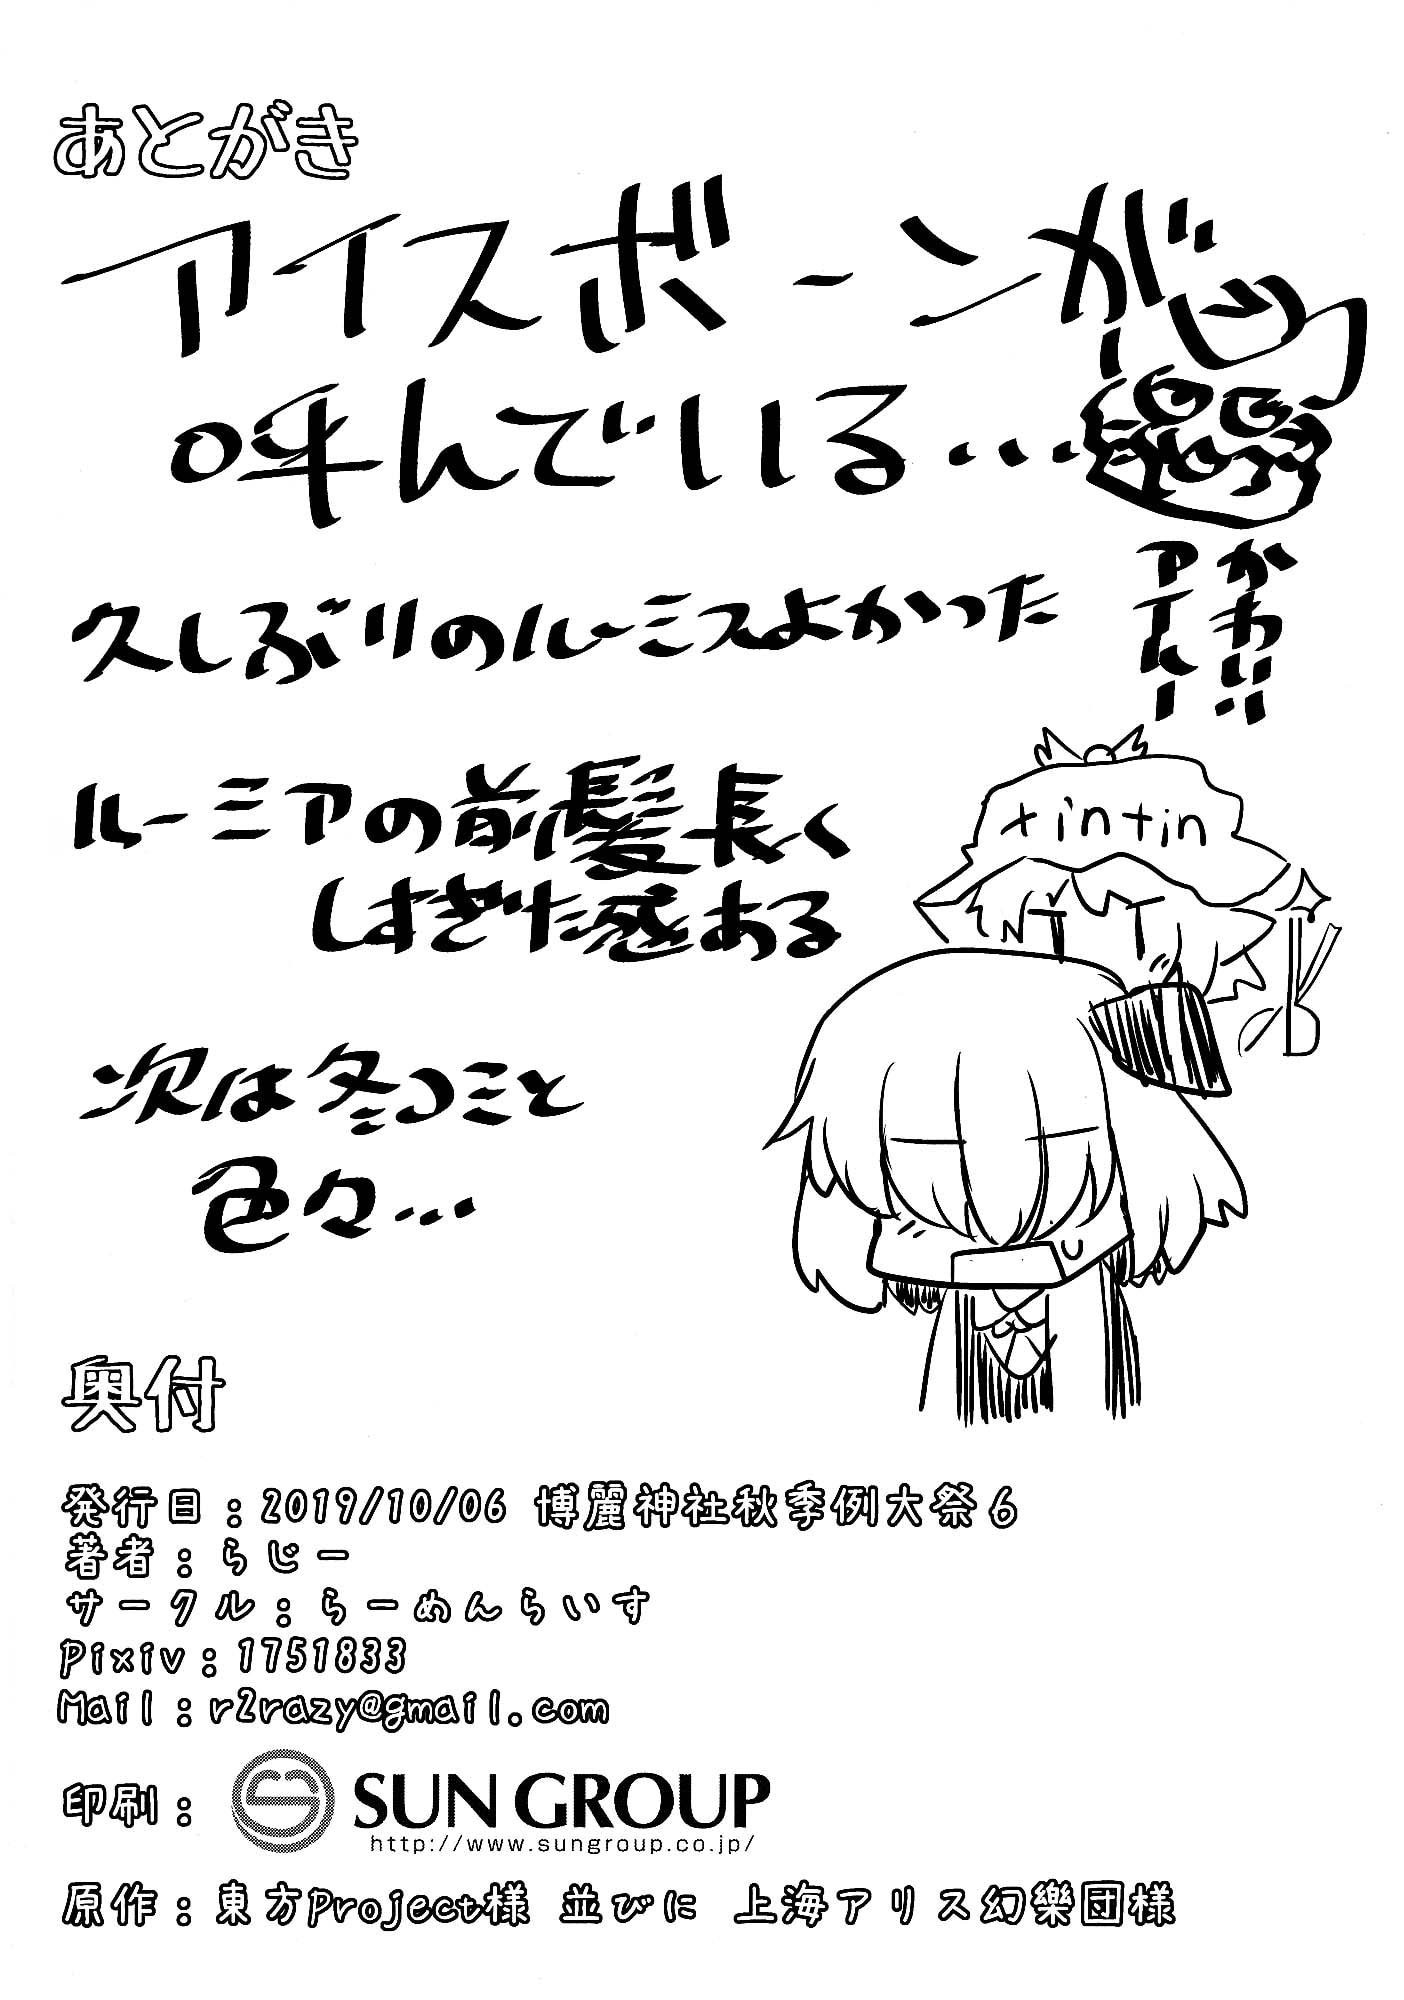 あとがき
アイスボーンが
呼んでいる…
かわいい!!
アイルー
久しぶりのルーミスよかった
ルーミアの前髪長く
しすぎた感ある
tintin
次は冬コミと
色々…
奥付
発行日：2019/10/06 博麗神社秋季例大祭6
著者：らじー
サークル：らーめんらいす
Pixiv：1751833
Mail：r2razy@gmail.com
印刷：
SUN GROUP
http://www.sungroup.co.jp/
原作：東方Project様 並びに 上海アリス幻樂団様